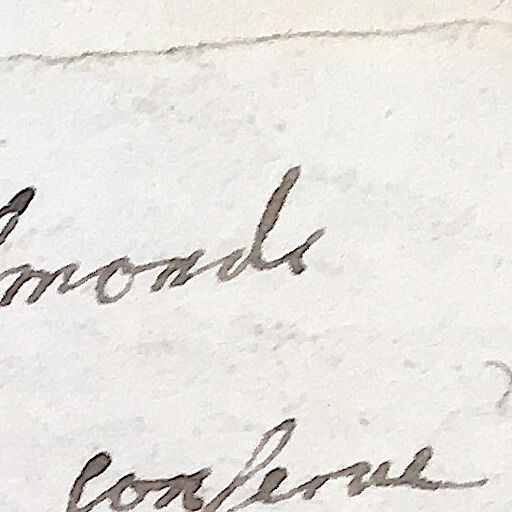 lmonds
conserue